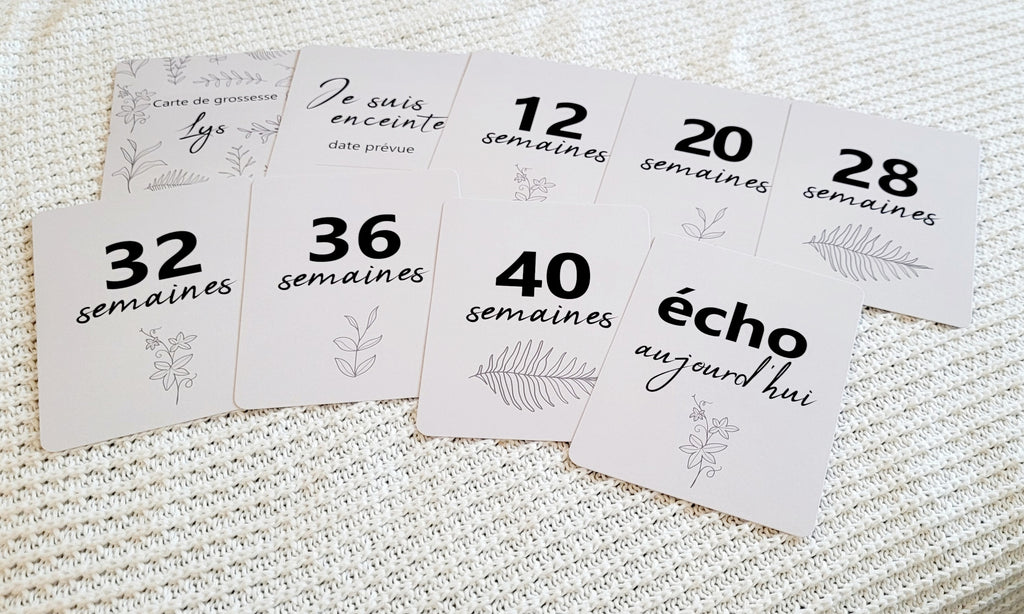 Carte de grossesse
Lys
Je suis
enceinte
date prévue
12
semaines
20
semaines
28
semaines
32
semaines
36
semaines
40
semaines
écho
aujourd'hui